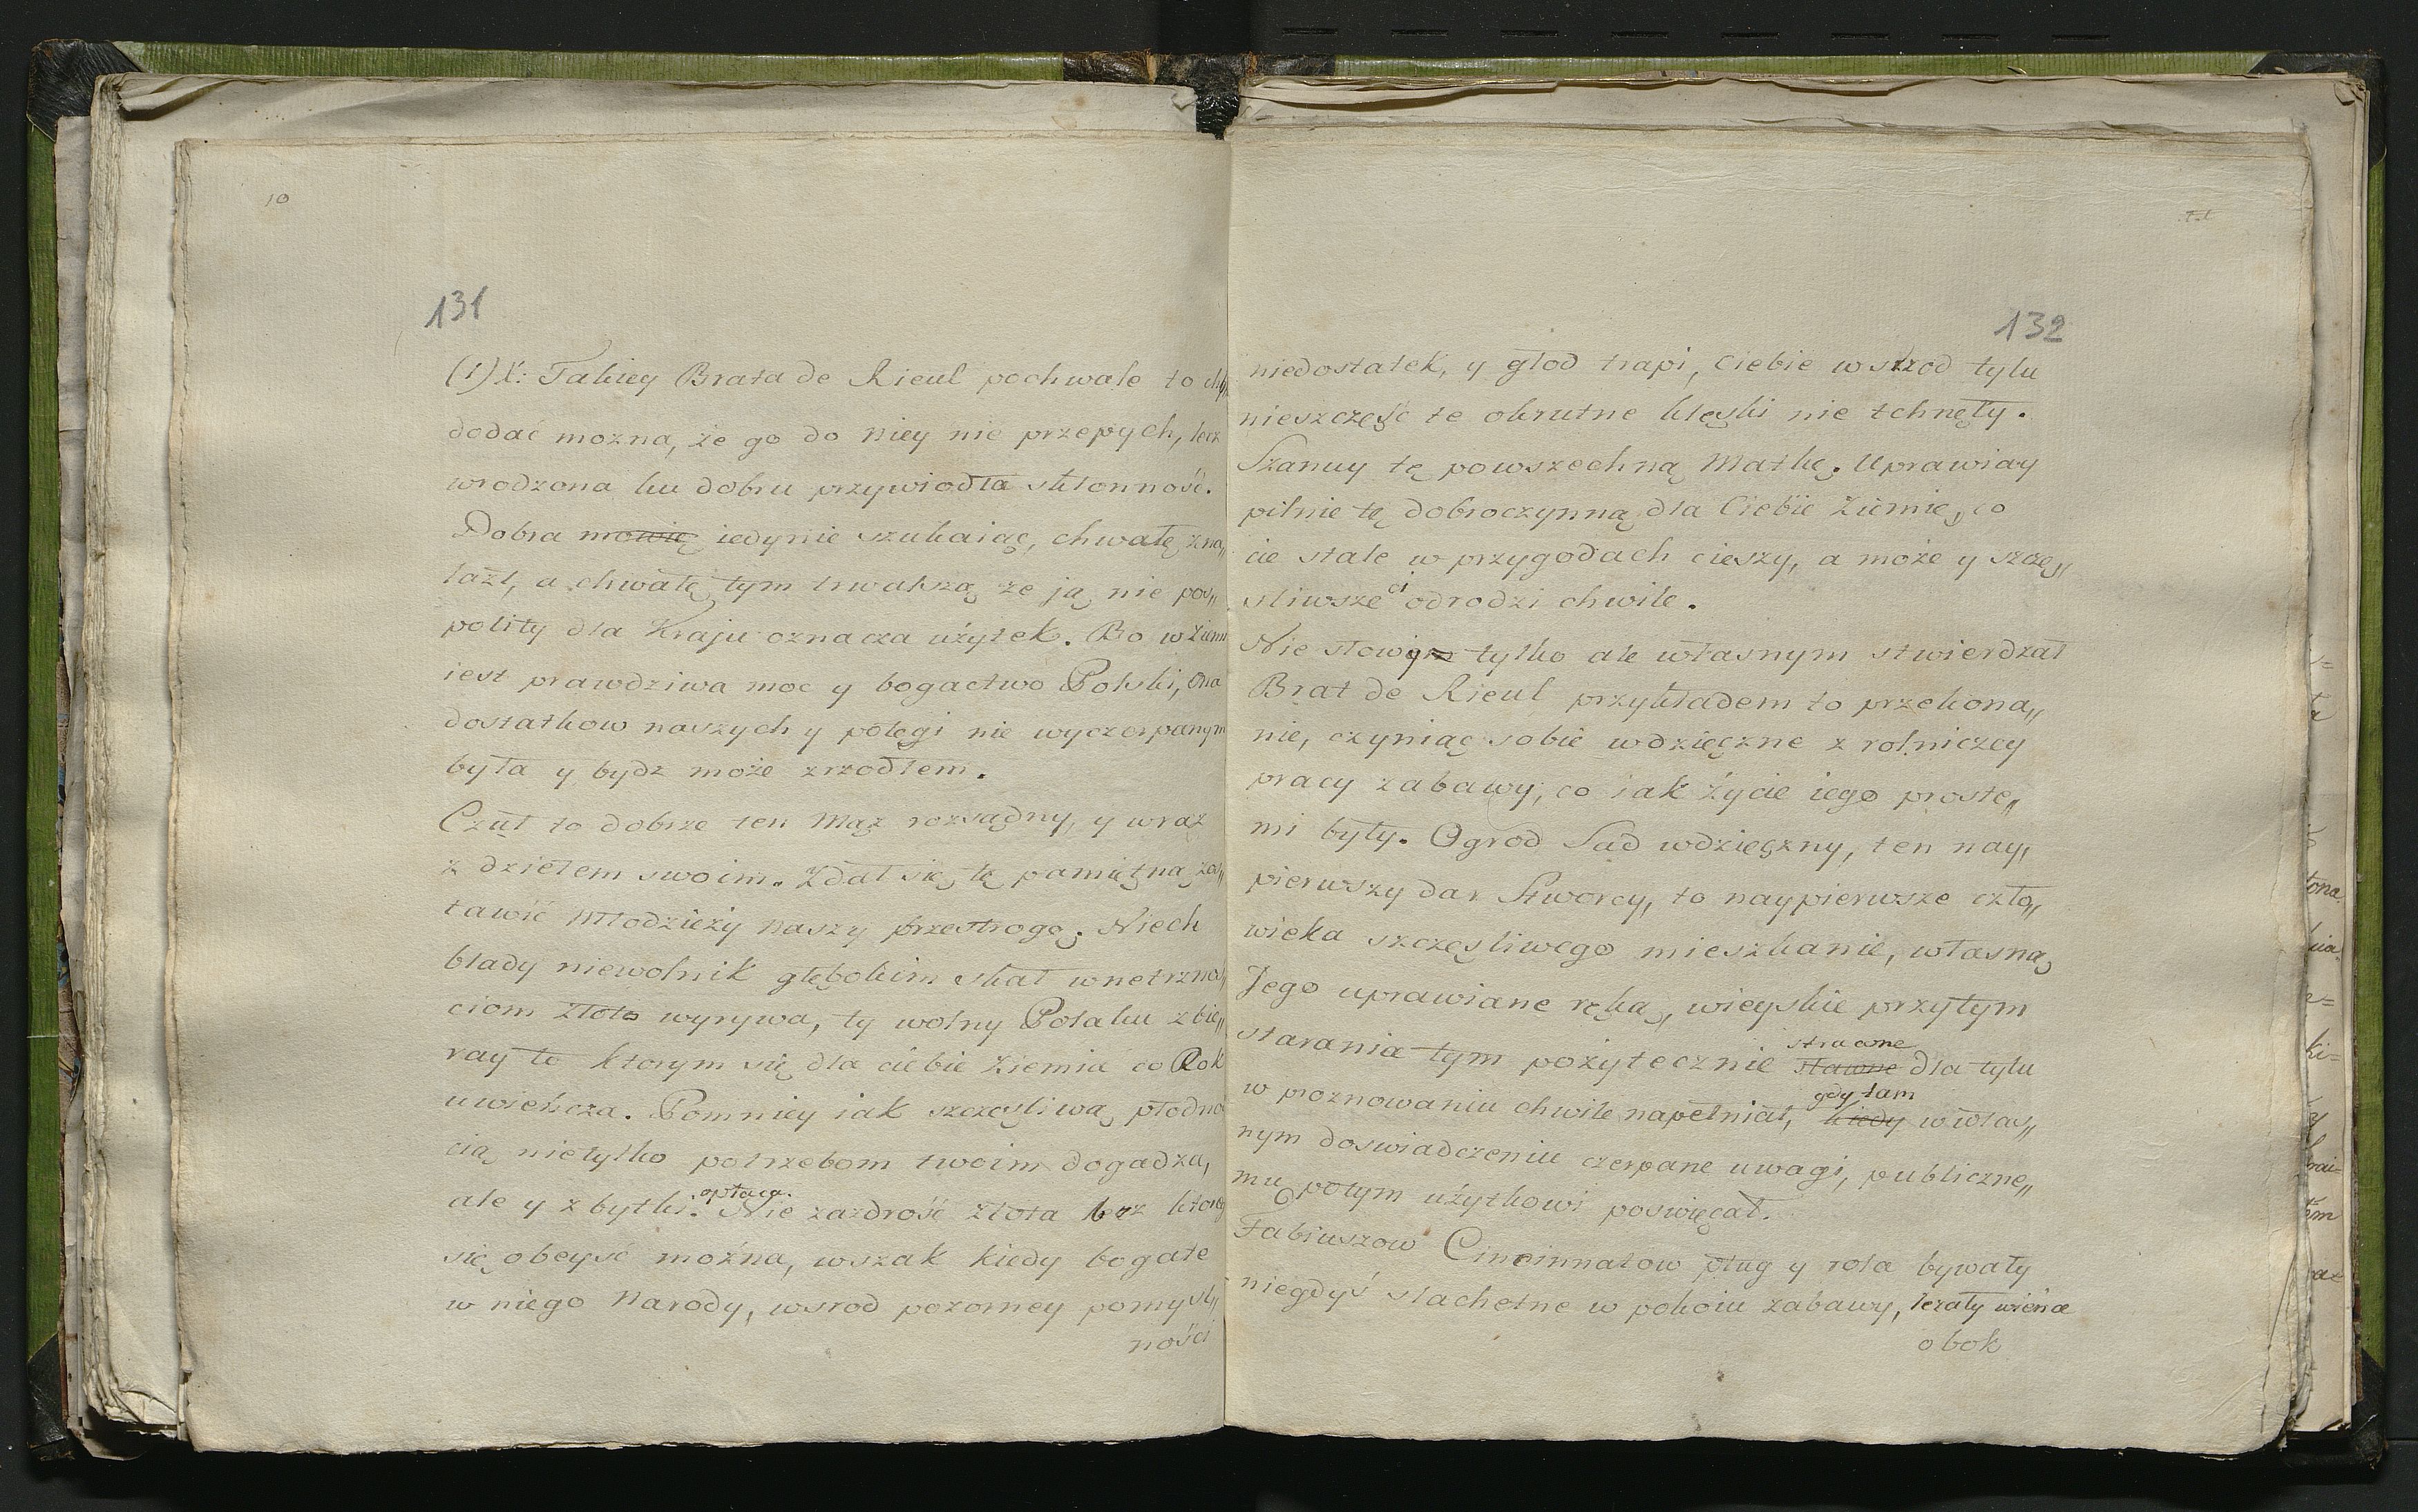 10
131
(1) X: Takiey Brata de Rieul pochwale to
dodać mozna, że go do niey nie przepych, lecz
wrodzona ku dobru przywiodła skłonność.
Dobra mowię iedynie szukaiąc, chwałę zna„
lazł, a chwałę tym trwalszą że ją nie pos„
polity dla Kraju oznacza użytek. Bo w Ziemi
iest prawdziwa moc y bogactwo Polski, ona
dostatkow naszych y potęgi nie wyczerpanym
była y bydz może zrzodłem.
Czuł to dobrze ten Mąż rozsądny, y wraz
z dziełem swoim. Zdał się tę pamiętną zos„
tawić Młodzieży naszy przestrogę. Niech
blady niewolnik głębokim skał wnetrznoś„
ciom złoto wyrywa, ty wolny Polaku zbie„
ray to ktorym się dla ciebie Ziemia co Rok
uwieńcza. Pomniey iak szczęsliwą płodno
cią nietylko potrzebom twoim dogadza,
ale y zbytki opłaca. Nie zazdrość złota bez ktorego
się obeysć można, wszak kiedy bogate
w niego Narody, wsrod pozorney pomysl„
ności
132
niedostatek, y głod trapi, Ciebie wsrzod tylu
nieszczęść te okrutne klęski nie tchnęły.
Szanuy tę powszechną Matkę. Uprawiay
pilnie tę dobroczynną dla Ciebie Ziemię, co
cie stale w przygodach cieszy, a może y szczę„
sliwsze ci odrodzi chwile.
Nie słowy tylko ale własnym stwierdzał
Brat de Rieul przykładem to przekona„
nie, czyniąc sobie wdzięczne z rolniczey
pracy zabawy, co iak życie iego proste„
mi były. Ogrod Sad wdzięczny, ten nay„
pierwszy dar Stworcy, to naypierwsze czło„
wieka szczęsliwego mieszkanie, własną
Jego uprawiane ręką, wieyskie przytym
starania tym pożytecznie stracone sławne dla tylu
w proznowaniu chwile napełniał, gdy tam kiedy w włas„
nym doswiadczeniu czerpane uwagi, publiczne„
mu potym użytkowi poswięcał.
Fabiuszow Cincinnatow pług y rola bywały
niegdyś slachetne w pokoiu zabawy, leżały wieńce
obok